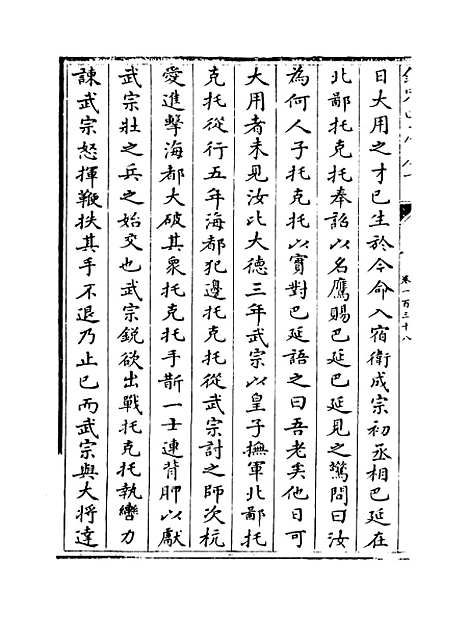 卷一百三十八
日大用之才已生於今命入宿衛成宗初丞相巴延在
北鄙托克托奉詔以名鷹賜巴延巴延見之驚問曰汝
為何人子托克托以實對巴延語之曰吾老矣他日可
大用者未見汝比大德三年武宗以皇子撫軍北鄙托
克托從行五年海都犯邊托克托從武宗討之師次杭
愛進擊海都大破其衆托克托手斮一士連背胛以獻
武宗壯之兵之始交也武宗銳欲出戰托克托執轡力
諫武宗怒揮鞭抶其手不退乃止已而武宗與大將達